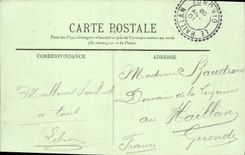 CARTE POSTALE
Tous les Pays étrangers n'acceptent pas la Correspondance au recto
(Se renseigner à la Poste)
CORRESPONDANCE
ADRESSE
LE HAILLAN
GIRONDE
Meilleurs Souhaits
à tous
Madame
Domaine de la
au Haillan
Gironde
France